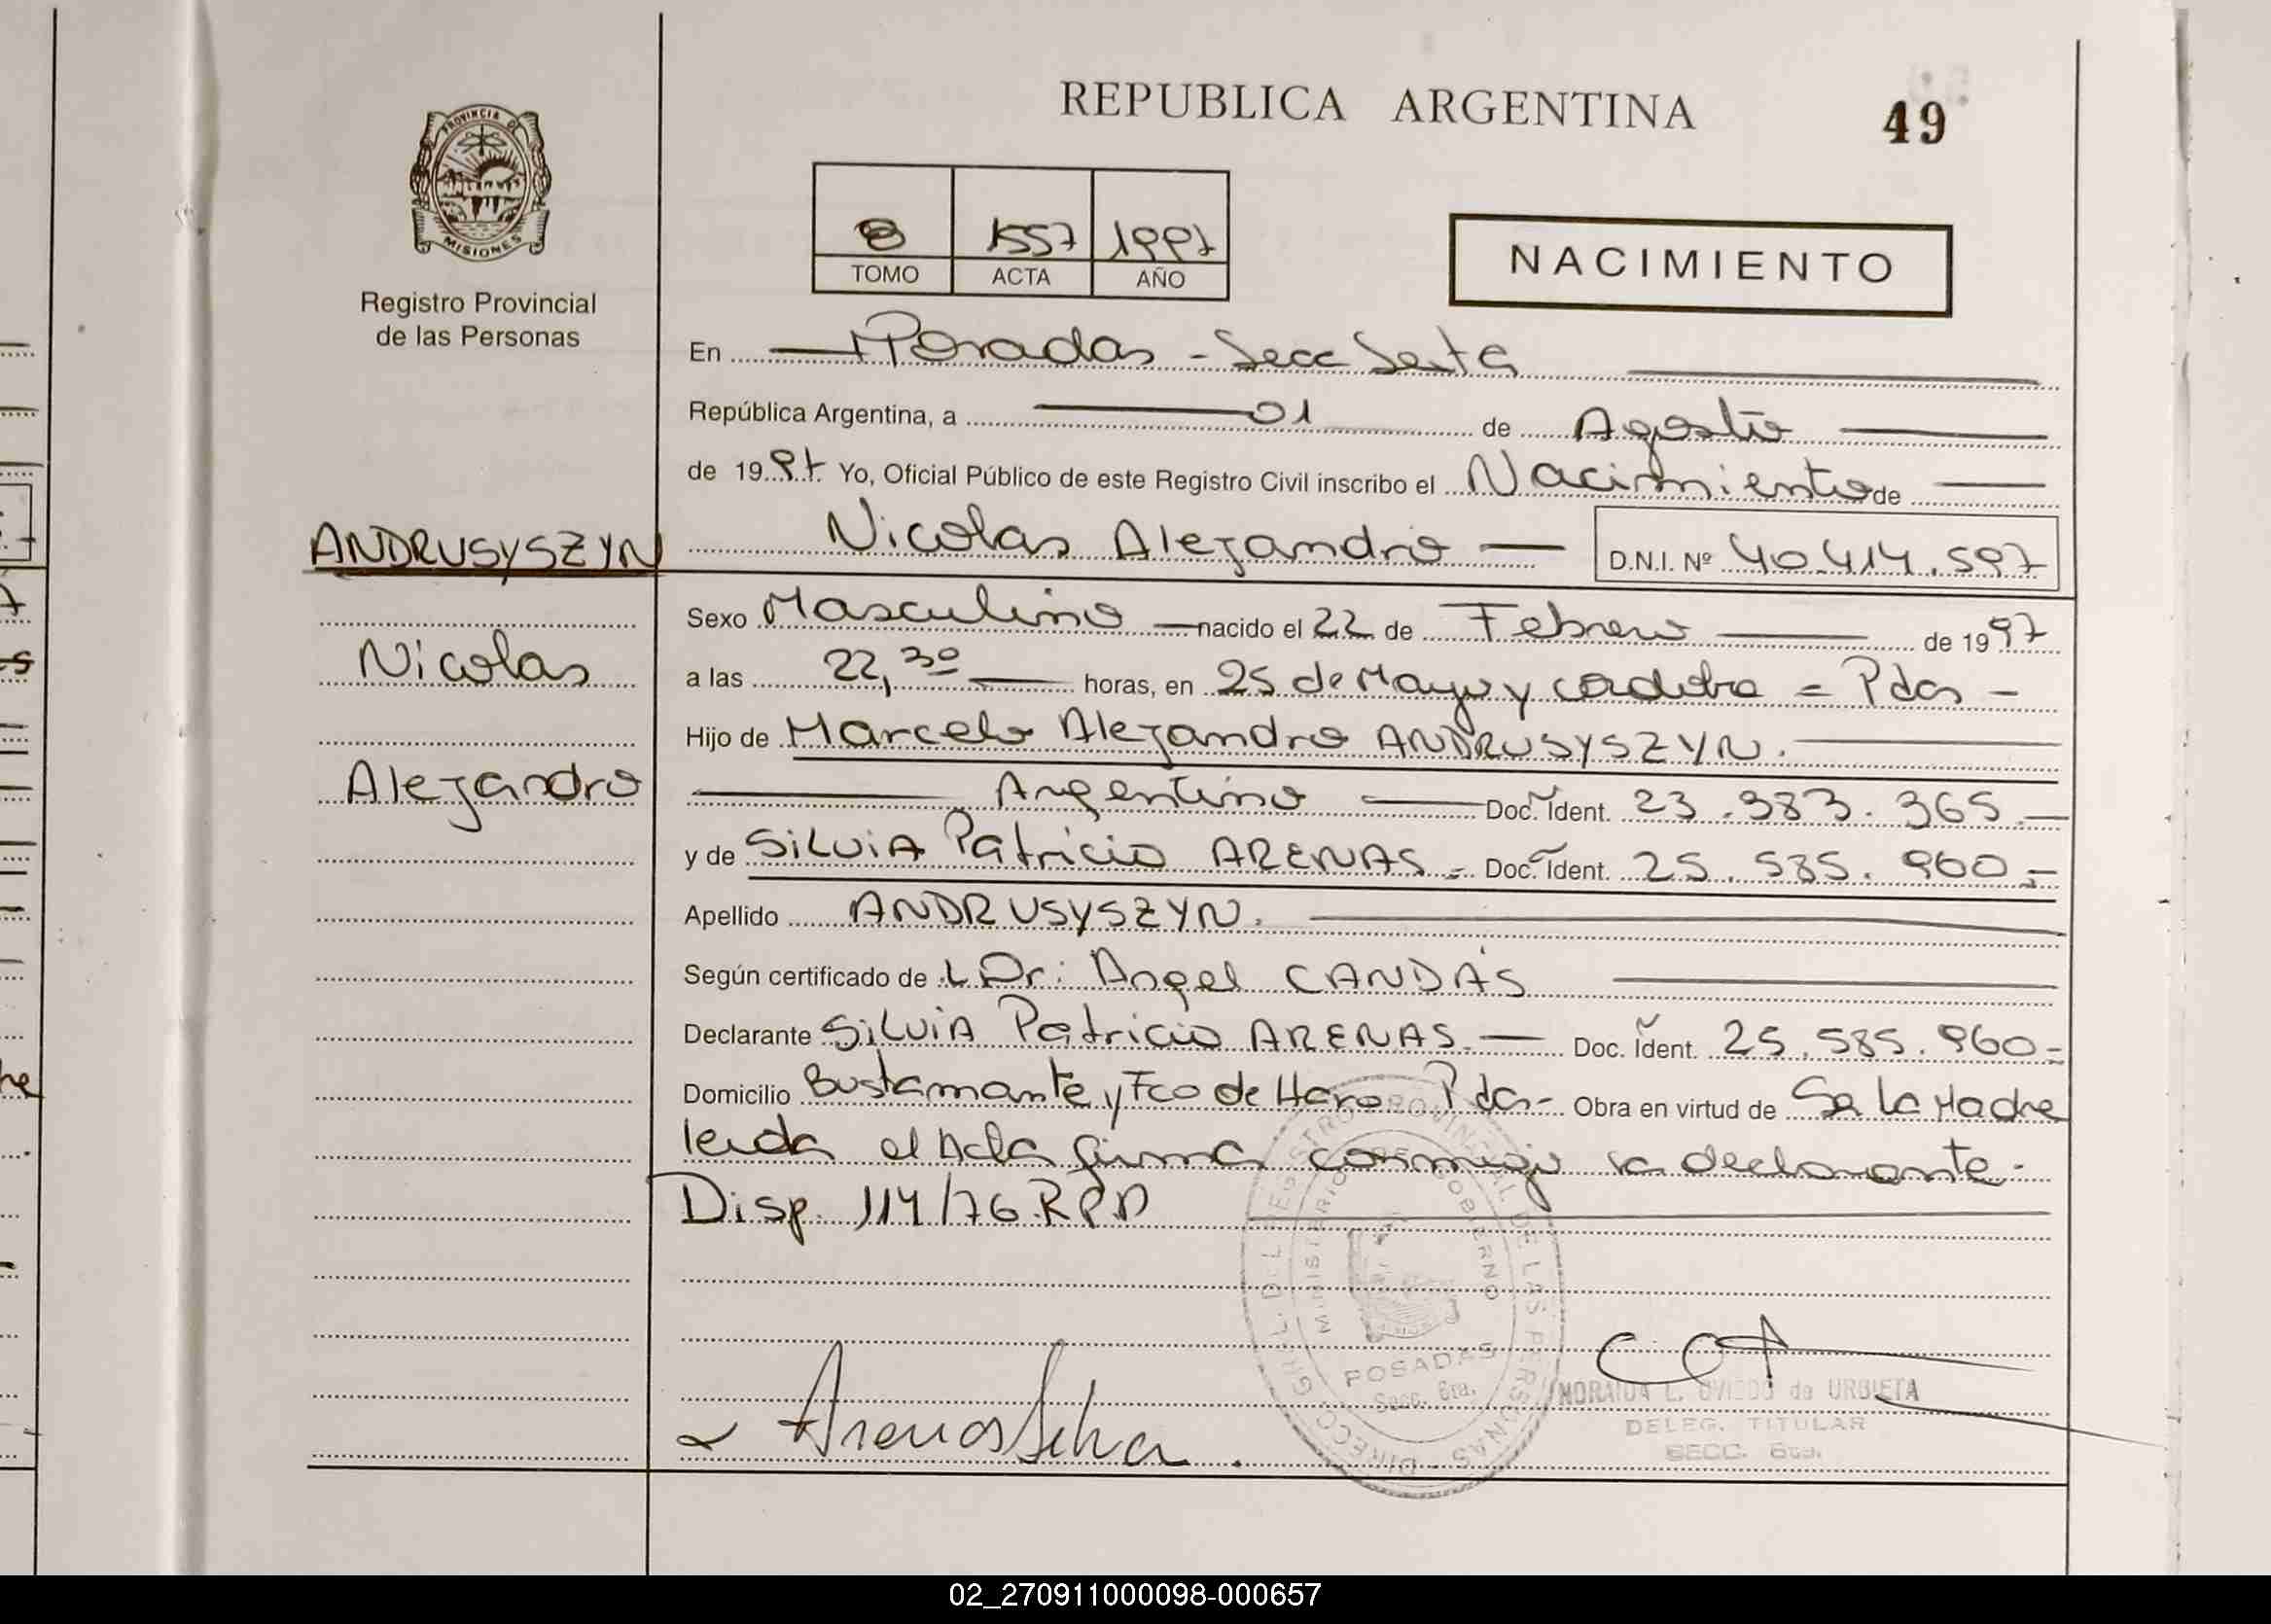 REPUBLICA ARGENTINA
49
PROVINCIA DE
MISIONES
Registro Provincial
de las Personas
8 1557 1997
TOMO ACTA AÑO
NACIMIENTO
En Posadas - Secc Sexta
República Argentina, a 01 de Agosto
de 1997. Yo, Oficial Público de este Registro Civil inscribo el Nacimiento de
ANDRUSYSZYN
Nicolas Alejandro D.N.I. Nº 40.414.597
Nicolas
Alejandro
Sexo Masculino nacido el 22 de Febrero de 1997
a las 22,30 horas, en 25 de Mayo y cordoba = Pdas -
Hijo de Marcelo Alejandro ANDRUSYSZYN.
Argentino Doc. Ident. 23.383.365.-
y de SiLViA Patricia ARENAS.= Doc. Ident. 25.585.960.=
Apellido ANDRUSYSZYN.
Según certificado de L Dr: Angel CANDÁS
Declarante SiLViA Patricia ARENAS.- Doc. Ident. 25.585.960=
Domicilio Bustamante y Fco de Haro Pdas- Obra en virtud de Se La Madre
leida el Acta firma conmigo la declarante.
Disp. 114/76.RPP
DIRECC. GRAL. DEL REGISTRO PROVINCIAL DE LAS PERSONAS
MINISTERIO DE GOBIERNO
POSADAS
Secc. 6ta.
Arenas Silva.
MORAIDA L. OVIEDO de URBIETA
DELEG. TITULAR
SECC. 6ta.
02_270911000098-000657